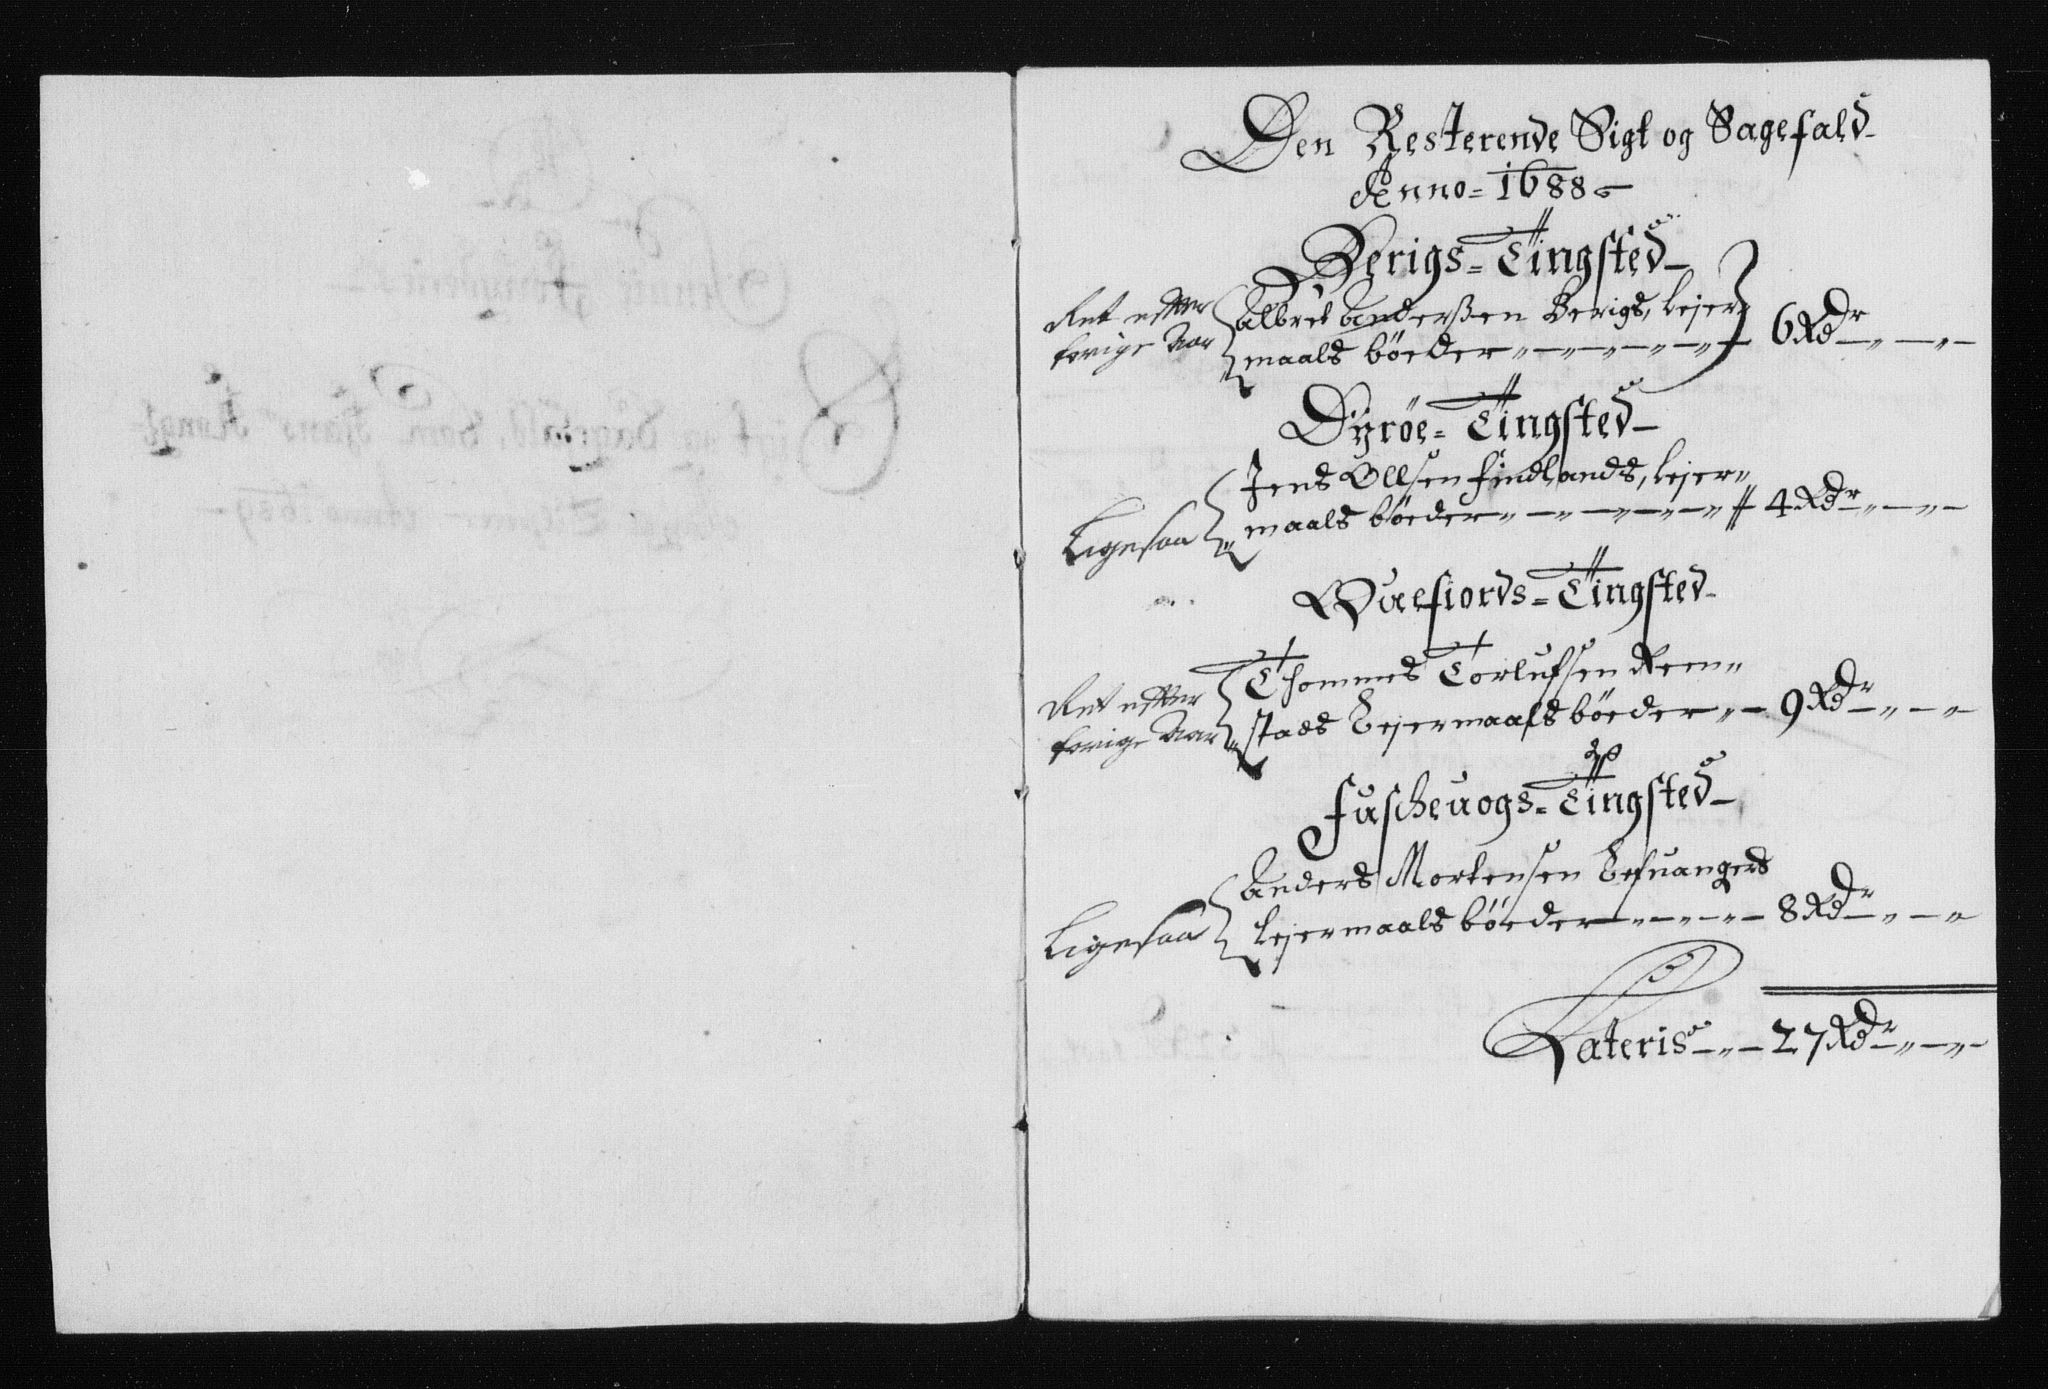 Den Resterende Sigt og Sagefald
Anno = 1688
Berigs = Tingsted
Ret efter forige Aar
Albret Anderßen Berigs, Lejer-
maals bøeder 6 Rdr
Dyrøe = Tingsted
Ligesaa
Jens Ollsen findlands, Lejer-
maals bøeder 4 Rdr
Waefiords = Tingsted
Ret efter forige Aar
Thommes Torlufsen Rem-
stads Lejermaals bøeder 9 Rdr
Fuscheuogs = Tingsted
Ligesaa
Anders Mortensen Lefuangers
Lejermaals bøeder 8 Rdr
Lateris 27 Rdr